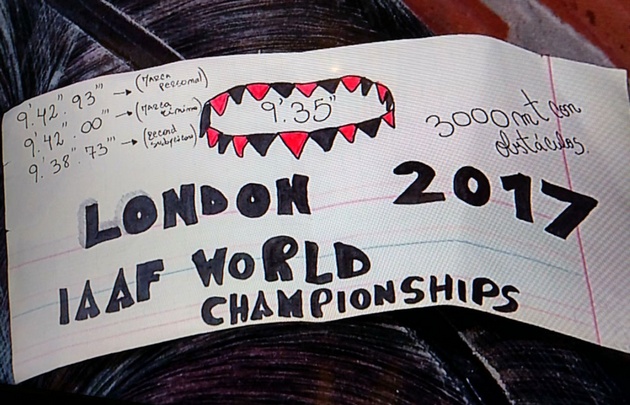 9'.42".93"' → (Marca personal)
9'.42".00"' → (Marca mínima)
9'.38".73"' → (Record
9'.35"
3000mt con
obstáculos.
LONDON 2017
IAAF WORLD
CHAMPIONSHIPS